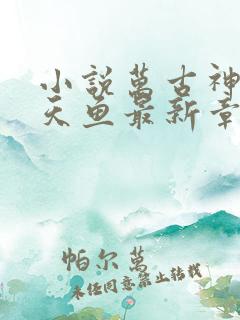 小説萬古神
天魚最新章
帕尔萬
未经同意禁止转载